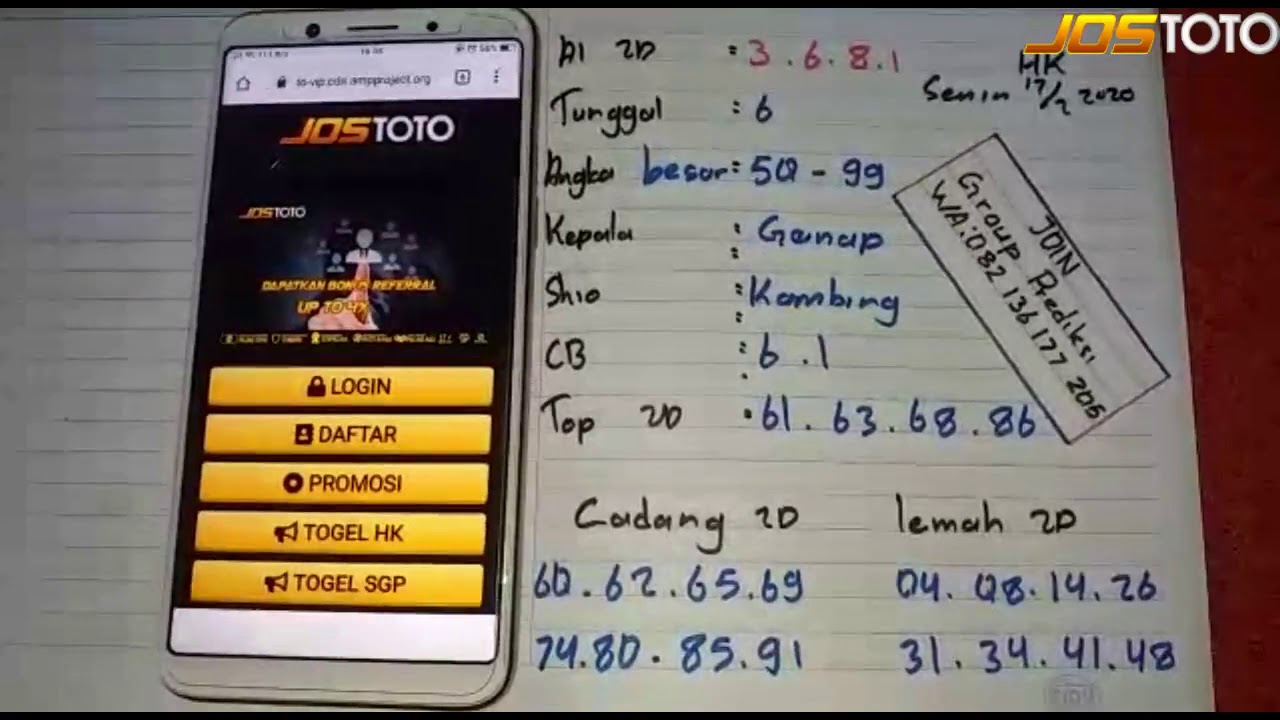 JOSTOTO
to-vip.cdn.ampproject.org
JOSTOTO
JOSTOTO
DAPATKAN BONUS REFERRAL
UP TO 4%
LOGIN
DAFTAR
PROMOSI
TOGEL HK
TOGEL SGP
HK
Senin 17/2 2020
AI 2D : 3.6.8.1
Tunggal : 6
Angka besar: 50 - 99
Kepala : Genap
Shio : Kambing
CB : 6.1
Top 2D : 61.63.68.86
JOIN
Group Prediksi
WA:082 136 177 206
Cadang 2D
60.62.65.69
74.80.85.91
lemah 2D
04.08.14.26
31.34.41.48